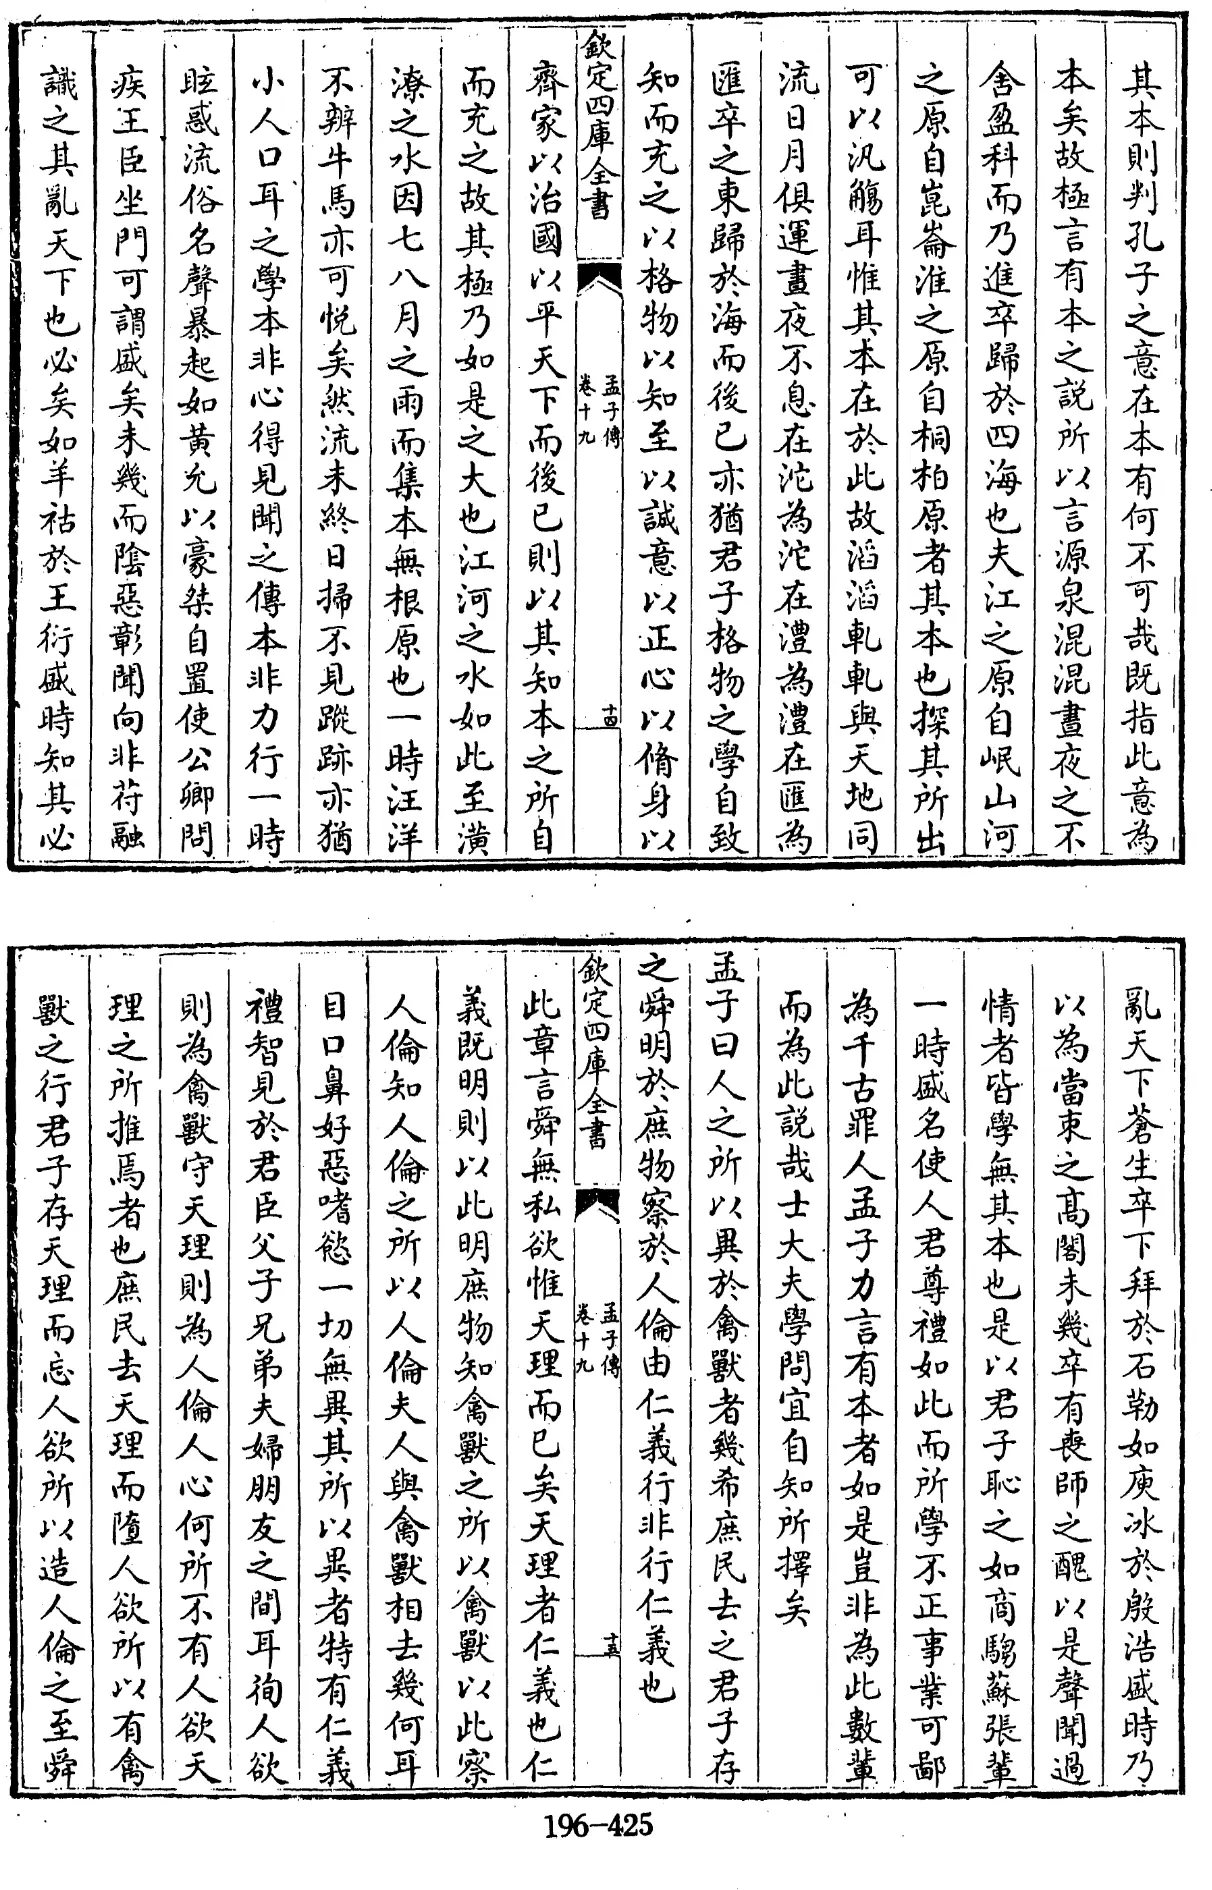 其本則判孔子之意在本有何不可哉既指此意為
本矣故極言有本之説所以言源泉混混晝夜之不
舍盈科而乃進卒歸於四海也夫江之原自岷山河
之原自崑崙淮之原自桐柏原者其本也探其所出
可以汎觴耳惟其本在於此故滔滔軋軋與天地同
流日月俱運晝夜不息在沱為沱在澧為澧在匯為
匯卒之東歸於海而後已亦猶君子格物之學自致
知而充之以格物以知至以誠意以正心以脩身以
欽定四庫全書
孟子傳
卷十九
十四
齊家以治國以平天下而後已則以其知本之所自
而充之故其極乃如是之大也江河之水如此至潢
潦之水因七八月之雨而集本無根原也一時汪洋
不辨牛馬亦可悦矣然流未終日掃不見蹤跡亦猶
小人口耳之學本非心得見聞之傳本非力行一時
眩惑流俗名聲暴起如黄允以豪桀自置使公卿問
疾王臣坐門可謂盛矣未幾而隂惡彰聞向非苻融
識之其亂天下也必矣如羊祜於王衍盛時知其必
亂天下蒼生卒下拜於石勒如庾冰於殷浩盛時乃
以為當束之髙閣未幾卒有喪師之醜以是聲聞過
情者皆學無其本也是以君子恥之如商騶蘇張輩
一時盛名使人君尊禮如此而所學不正事業可鄙
為千古罪人孟子力言有本者如是豈非為此數輩
而為此説哉士大夫學問宜自知所擇矣
孟子曰人之所以異於禽獸者幾希庶民去之君子存
之舜明於庶物察於人倫由仁義行非行仁義也
欽定四庫全書
孟子傳
卷十九
十五
此章言舜無私欲惟天理而已矣天理者仁義也仁
義既明則以此明庶物知禽獸之所以禽獸以此察
人倫知人倫之所以人倫夫人與禽獸相去幾何耳
目口鼻好惡嗜慾一切無異其所以異者特有仁義
禮智見於君臣父子兄弟夫婦朋友之間耳徇人欲
則為禽獸守天理則為人倫人心何所不有人欲天
理之所推焉者也庶民去天理而隨人欲所以有禽
獸之行君子存天理而忘人欲所以造人倫之至舜
196-425